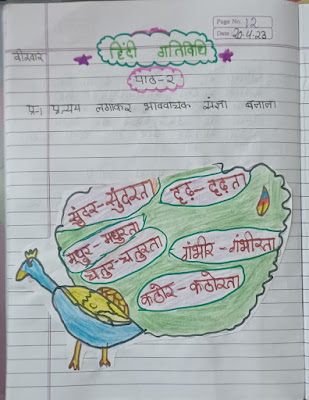 Page No. 12
Date 20.4.23
वीरवार
हिंदी गतिविधि
पाठ-२
प्र-1 प्रत्यय लगाकर भाववाचक संज्ञा बनाना
सुंदर-सुंदरता
दृढ़-दृढ़ता
मधुर-मधुरता
चतुर-चतुरता
गंभीर-गंभीरता
कठोर-कठोरता